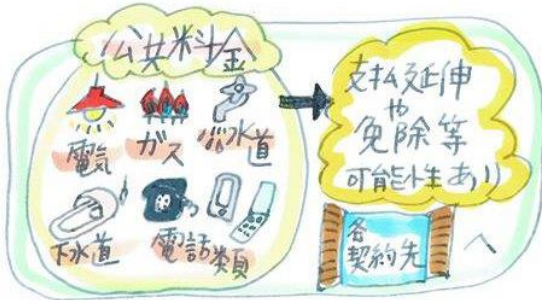 公共料金
電気
ガス
水道
下水道
電話類
支払延伸
や
免除等
可能性あり
各
契約先
へ